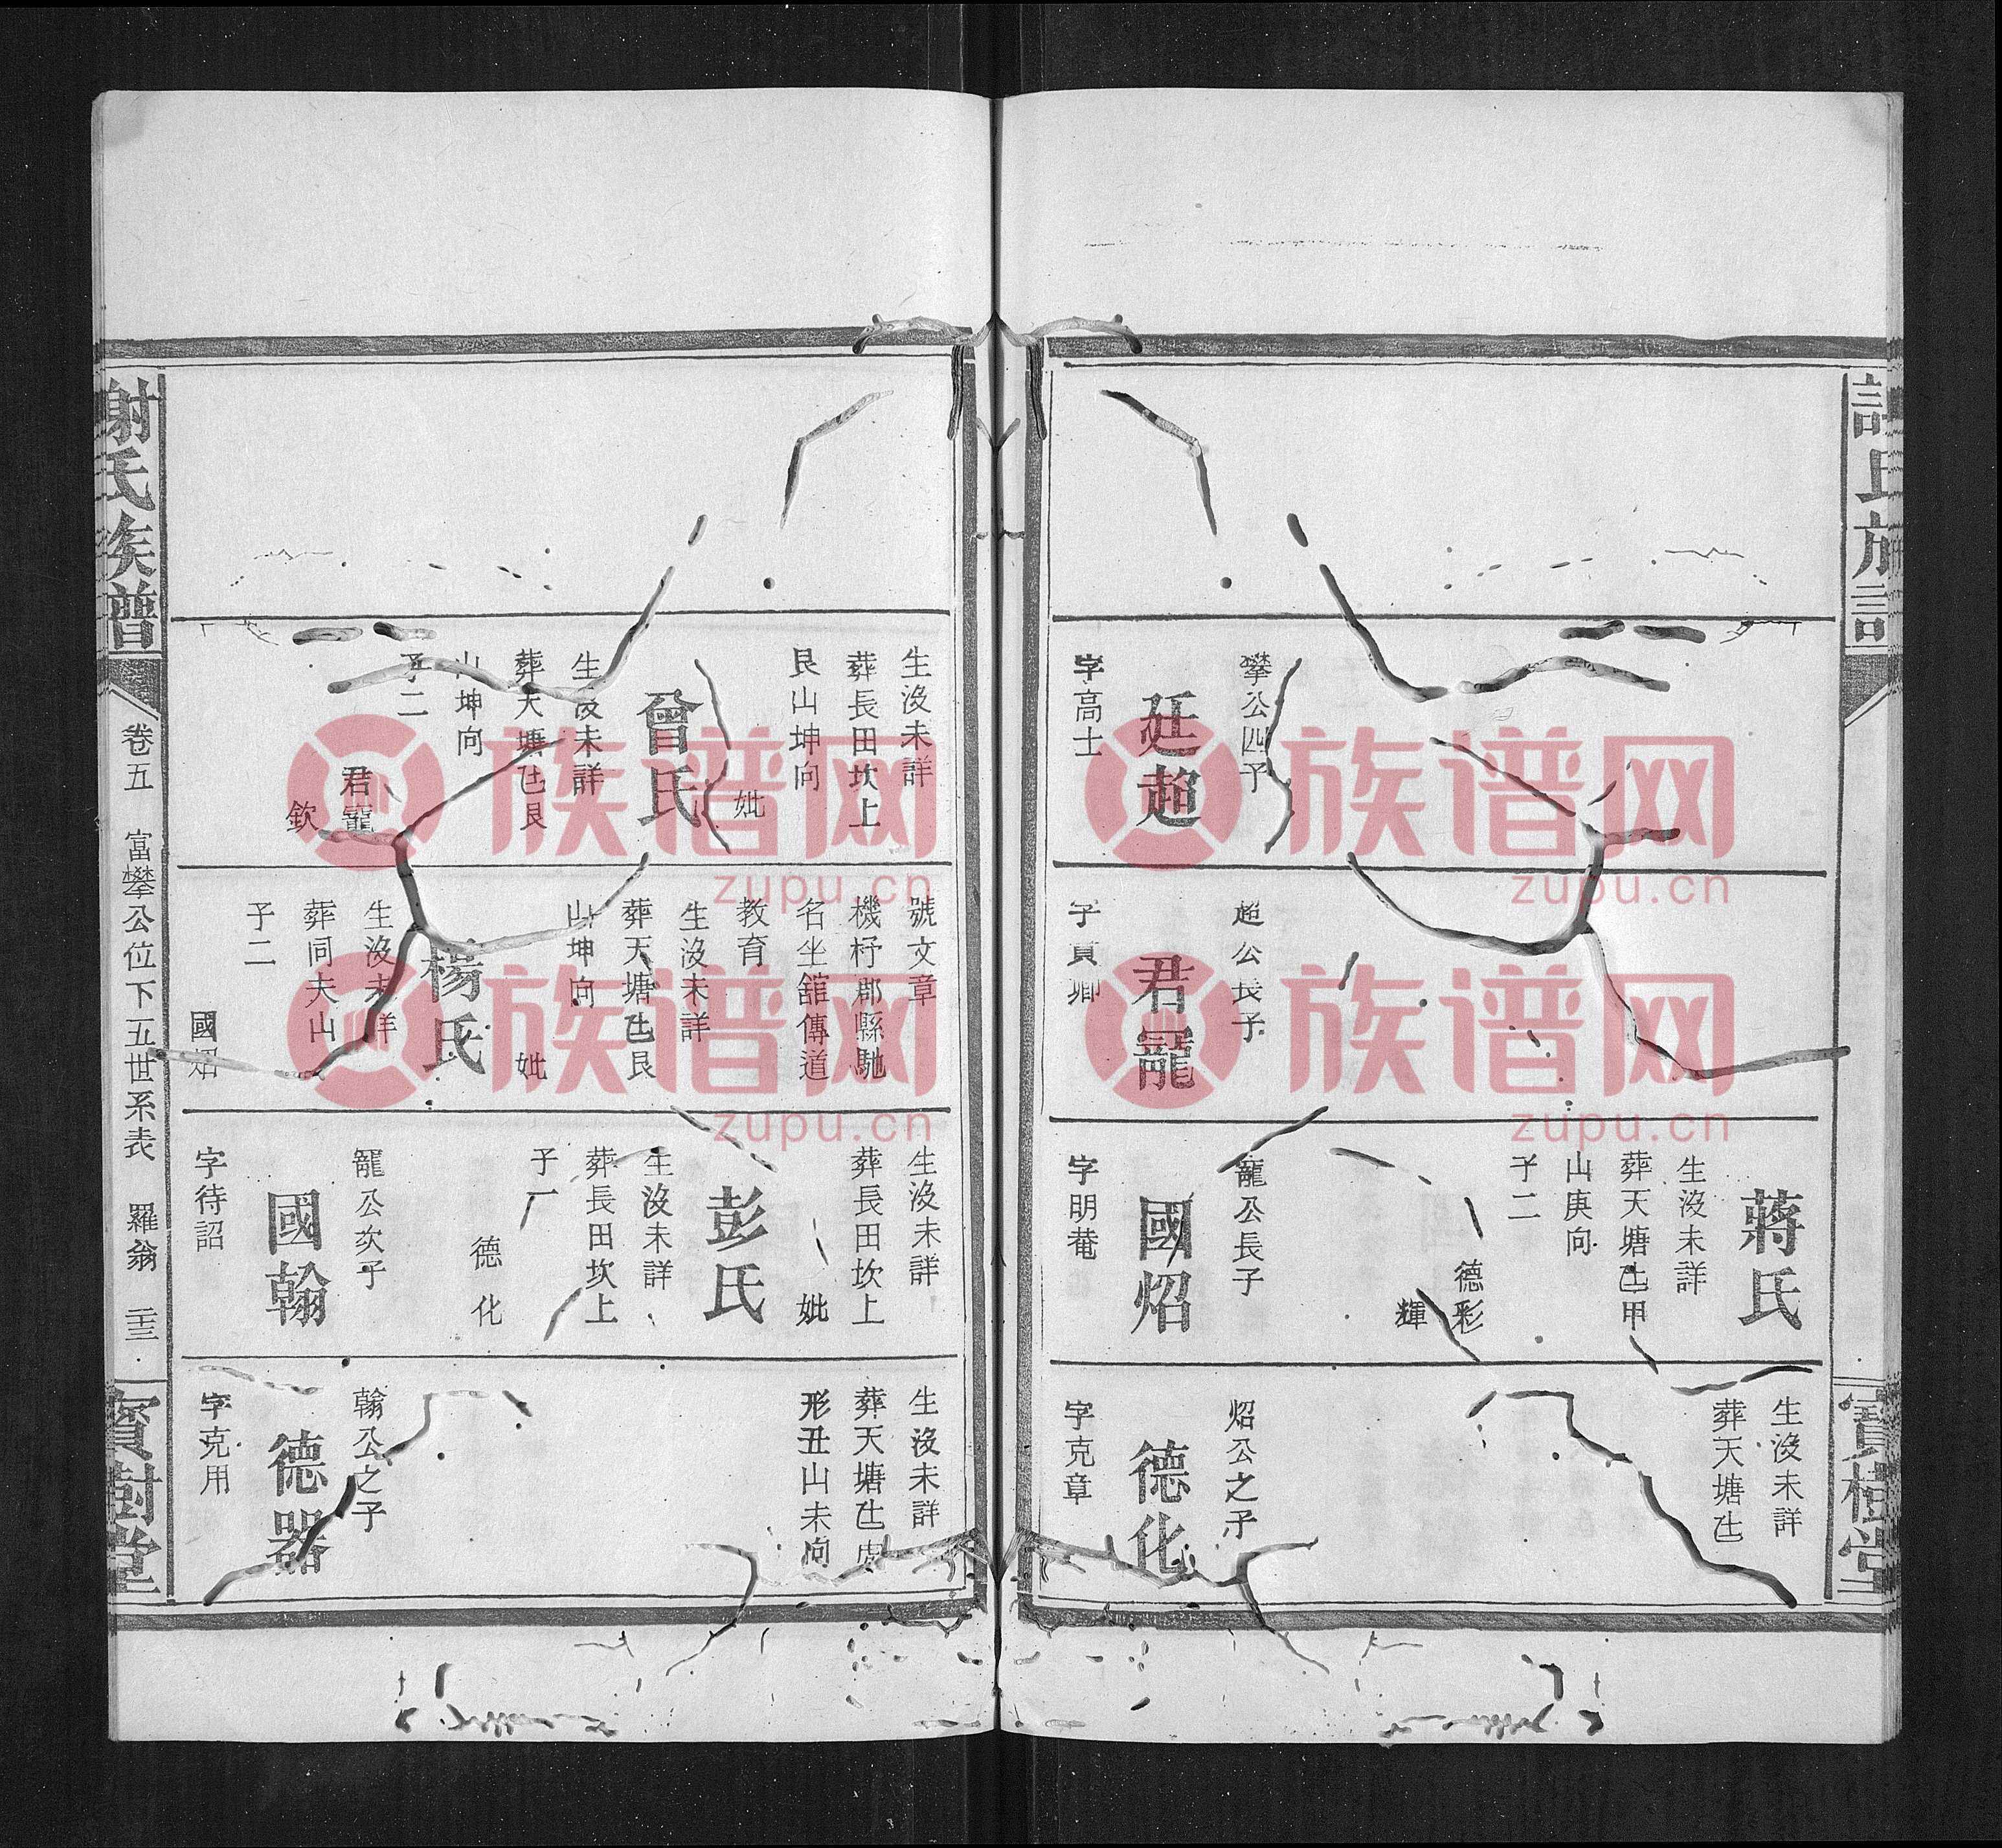 謝氏族譜
寶樹堂
攀公四子
廷超
字高士
超公長子
君寵
字貢卿
蔣氏
生沒未詳
葬天塘㐌甲
山庚向
子二
德彩
輝
寵公長子
國炤
字明菴
生沒未詳
葬天塘㐌
炤公之子
德化
字克章
生沒未詳
葬長田坎上
艮山坤向
妣
曾氏
生沒未詳
葬天塘㐌艮
山坤向
子二
君寵
欽
號文章
機杼郡縣馳
名坐舘傳道
教育
生沒未詳
葬天塘㐌艮
山坤向
妣
楊氏
生沒未詳
葬同夫山
子二
國炤
生沒未詳
葬長田坎上
妣
彭氏
生沒未詳
葬長田坎上
子一
德化
寵公次子
國翰
字待詔
生沒未詳
葬天塘㐌虎
形丑山未向
翰公之子
德器
字克用
謝氏族譜
卷五 富攀公位下五世系表 羅翁
寶樹堂
族谱网
zupu.cn
族谱网
zupu.cn
族谱网
zupu.cn
族谱网
zupu.cn